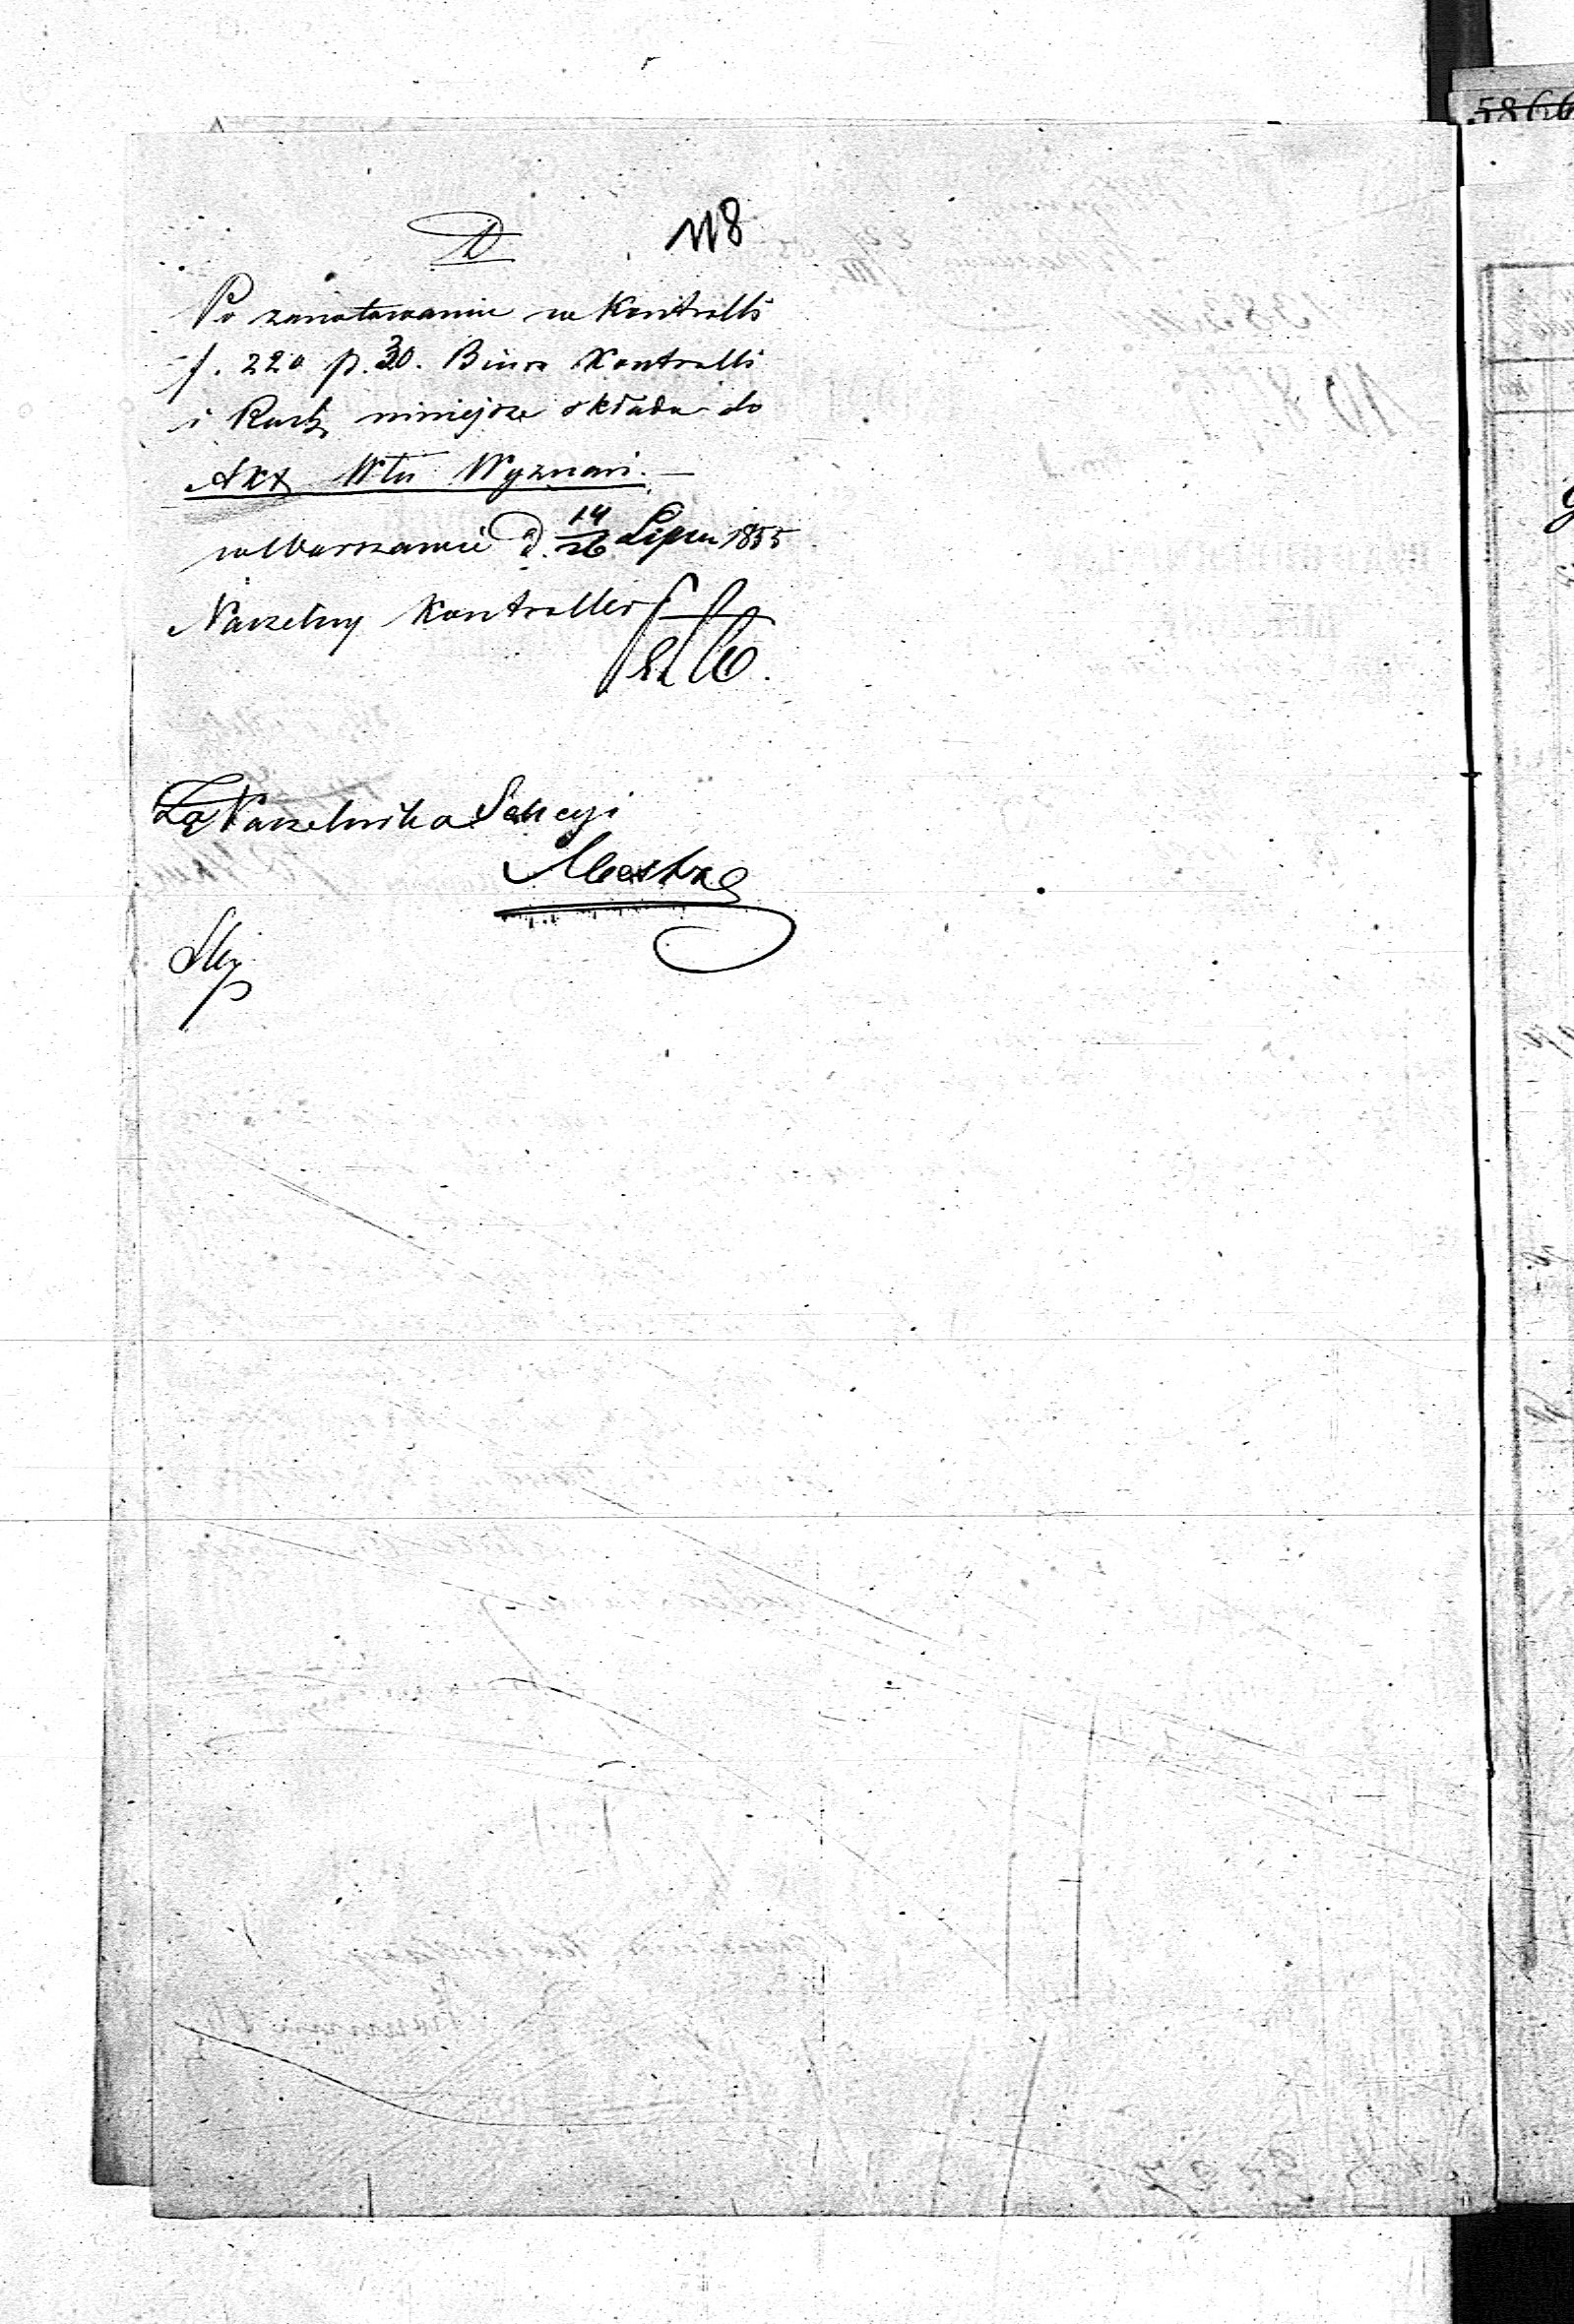 D
118
Po zanotowaniu w Kontrolli
f. 220 p. 30. Biuro Kontrolli
i Rach niniejsze składa do
Akt Włu Wyznań.—
w Warszawie d. 14/26 Lipca 1855
Naczelny Kontroller
Za Naczelnika Sekcyi
5866